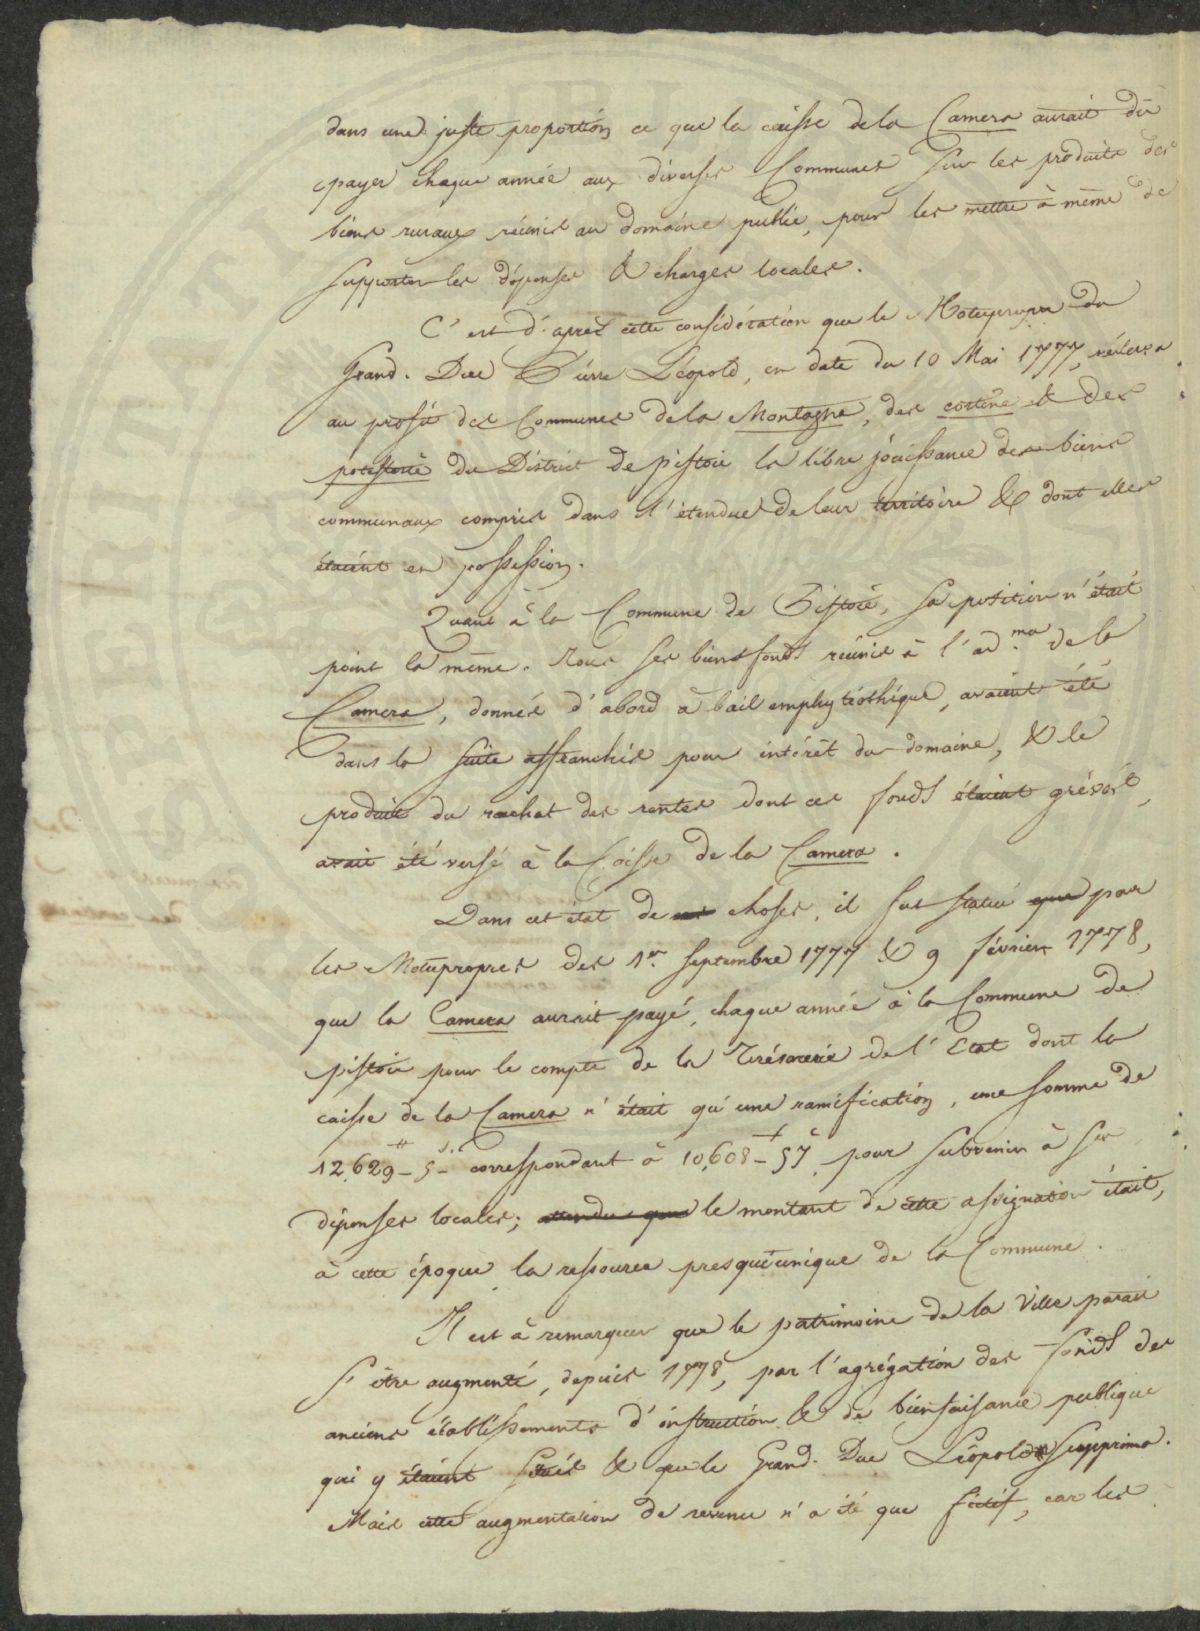 dans une juste proportion ce que la caisse de la Camera aurait dû
payer chaque année aux diverses Communes sur les produits des
biens ruraux réunis au domaine public, pour les mettre à même de
supporter les dépenses & charges locales.
C'est d'après cette considération que le Motuproprio du
Grand. Duc Pierre Léopold, en date du 10 Mai 1777,
au profit des Communes de la Montagne, des cortine & des
potesterie du District de pistoie la libre jouissance des biens
communaux compris dans l'étendue de leur territoire & dont elles
étaient en possession.
Quant à la Commune de Pistoie, sa position n'était
point la même. Tous ses biens fonds réunis à l'ad.on de la
Camera, donnés d'abord à bail emphytéothique, avaient été
dans la suite affranchis pour intérêt du domaine, & le
produit du rachat des rentes dont ces fonds étaient grévés,
avait été versé à la Caisse de la Camera.
Dans cet état de choses, il fut statué que par
les Motupropres des 1er. septembre 1777 & 9 février 1778,
que la Camera aurait payé, chaque année à la Commune de
pistoie pour le compte de la Trésorerie de l'Etat dont la
caisse de la Camera n'était qu'une ramification, une somme de
12,629 - 5 - correspondant à 10,608 - 57 c pour subvenir à ses
dépenses locales; attendu que le montant de cette assignation était,
à cette époque la ressource presqu'unique de la Commune.
Il est à remarquer que le patrimoine de la Ville parait
s'être augmenté, depuis 1778, par l'agrégation des fonds des
anciens établissements d'instruction & de bienfaisance publique
qui y étaient situés & que le Grand. Duc Léopold supprima.
Mais cette augmentation de revenu n'a été que fictif, car les